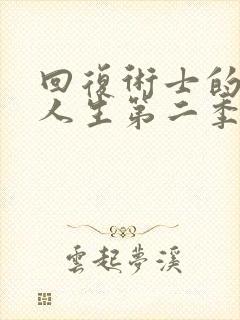 回復術士的
人生第二季
雲起夢溪